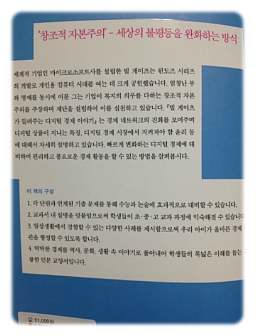 '창조적 자본주의' – 세상의 불평등을 완화하는 방식
세계적 기업인 마이크로소프트사를 설립한 빌 게이츠는 윈도즈 시리즈
의 개발로 개인용 컴퓨터 시대를 여는 데 크게 공헌했습니다. 엄청난 부
와 명예를 동시에 이룬 그는 기업이 복지의 의무를 다하는 창조적 자본
주의를 주장하며 재단을 설립하여 이를 실천하고 있습니다. 『빌 게이츠
가 들려주는 디지털 경제 이야기』는 경제 네트워크의 진화를 보여주며
디지털 상품이 지니는 특징, 디지털 경제 시장에서 지켜져야 할 윤리 등
에 대해서 자세히 설명하고 있습니다. 빠르게 변화하는 디지털 경제에 대
비하여 편리하고 풍요로운 경제 활동을 할 수 있는 방법을 살펴봅시다.
이 책의 구성
1. 각 단원과 연계된 기출 문제를 통해 수능과 논술에 효과적으로 대비할 수 있습니다.
2. 교과서 내 설명을 뒷받침으로써 학생들이 초·중·고 교과 과정에 익숙해질 수 있습니다
3. 일상생활에서 경험할 수 있는 다양한 사례를 제시함으로써 우리 아이가 올바른 경제
관을 형성할 수 있도록 합니다.
4. 딱딱한 경제를 역사, 문화, 생활 속 이야기로 풀어내어 학생들의 폭넓은 이해를 돕는
종합 인문 교양서입니다.
값 11,000원